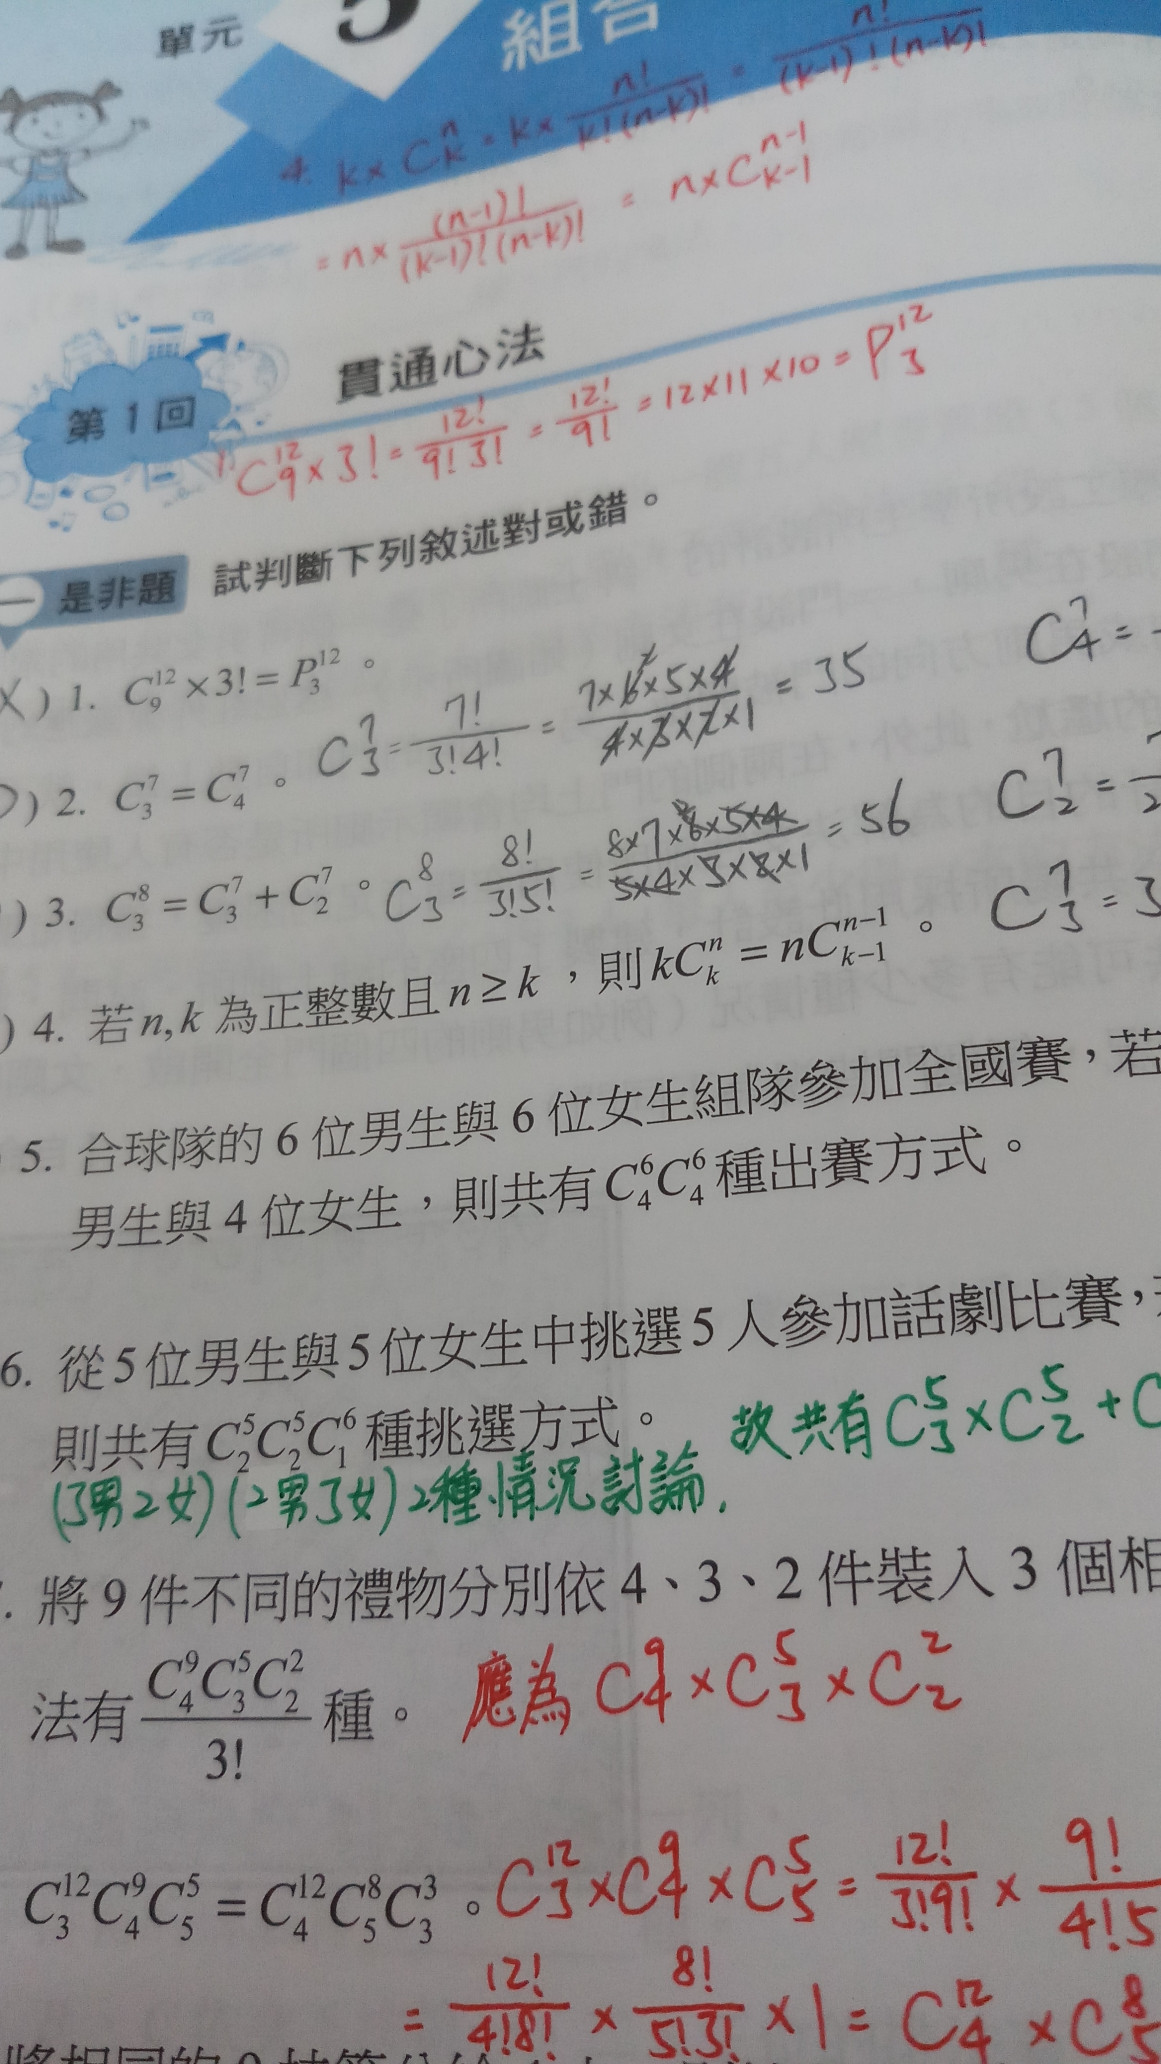 單元 5 組合
4. k × C^n_k = k × n!/k!(n-k)! = n!/(k-1)!(n-k)!
= n × (n-1)!/(k-1)!(n-k)! = n × C^{n-1}_{k-1}
第1回 貫通心法
1. C^{12}_9 × 3! = 12!/9!3! = 12!/9! = 12×11×10 = P^{12}_3
一 是非題 試判斷下列敘述對或錯。
X ) 1. C^{12}_9 × 3! = P^{12}_3。
) 2. C^7_3 = C^7_4。 C^7_3 = 7!/3!4! = 7×6×5×4/4×3×2×1 = 35 C^7_4 =
) 3. C^8_3 = C^7_3 + C^7_2。 C^8_3 = 8!/3!5! = 8×7×6×5×4/5×4×3×2×1 = 56 C^7_2 =
C^7_3 = 3
) 4. 若 n, k 為正整數且 n ≥ k，則 kC^n_k = nC^{n-1}_{k-1}。
5. 合球隊的 6 位男生與 6 位女生組隊參加全國賽，若
男生與 4 位女生，則共有 C^6_4C^6_4 種出賽方式。
6. 從 5 位男生與 5 位女生中挑選 5 人參加話劇比賽，
則共有 C^5_2C^5_2C^6_1 種挑選方式。 故共有 C^5_3 × C^5_2 + C
(3男2女)(2男3女)2種情況討論.
. 將 9 件不同的禮物分別依 4、3、2 件裝入 3 個相
法有 C^9_4C^5_3C^2_2/3! 種。 應為 C^9_4 × C^5_3 × C^2_2
C^{12}_3C^9_4C^5_5 = C^{12}_4C^8_5C^3_3。 C^{12}_3 × C^9_4 × C^5_5 = 12!/3!9! × 9!/4!5
= 12!/4!8! × 8!/5!3! × 1 = C^{12}_4 × C^8_5